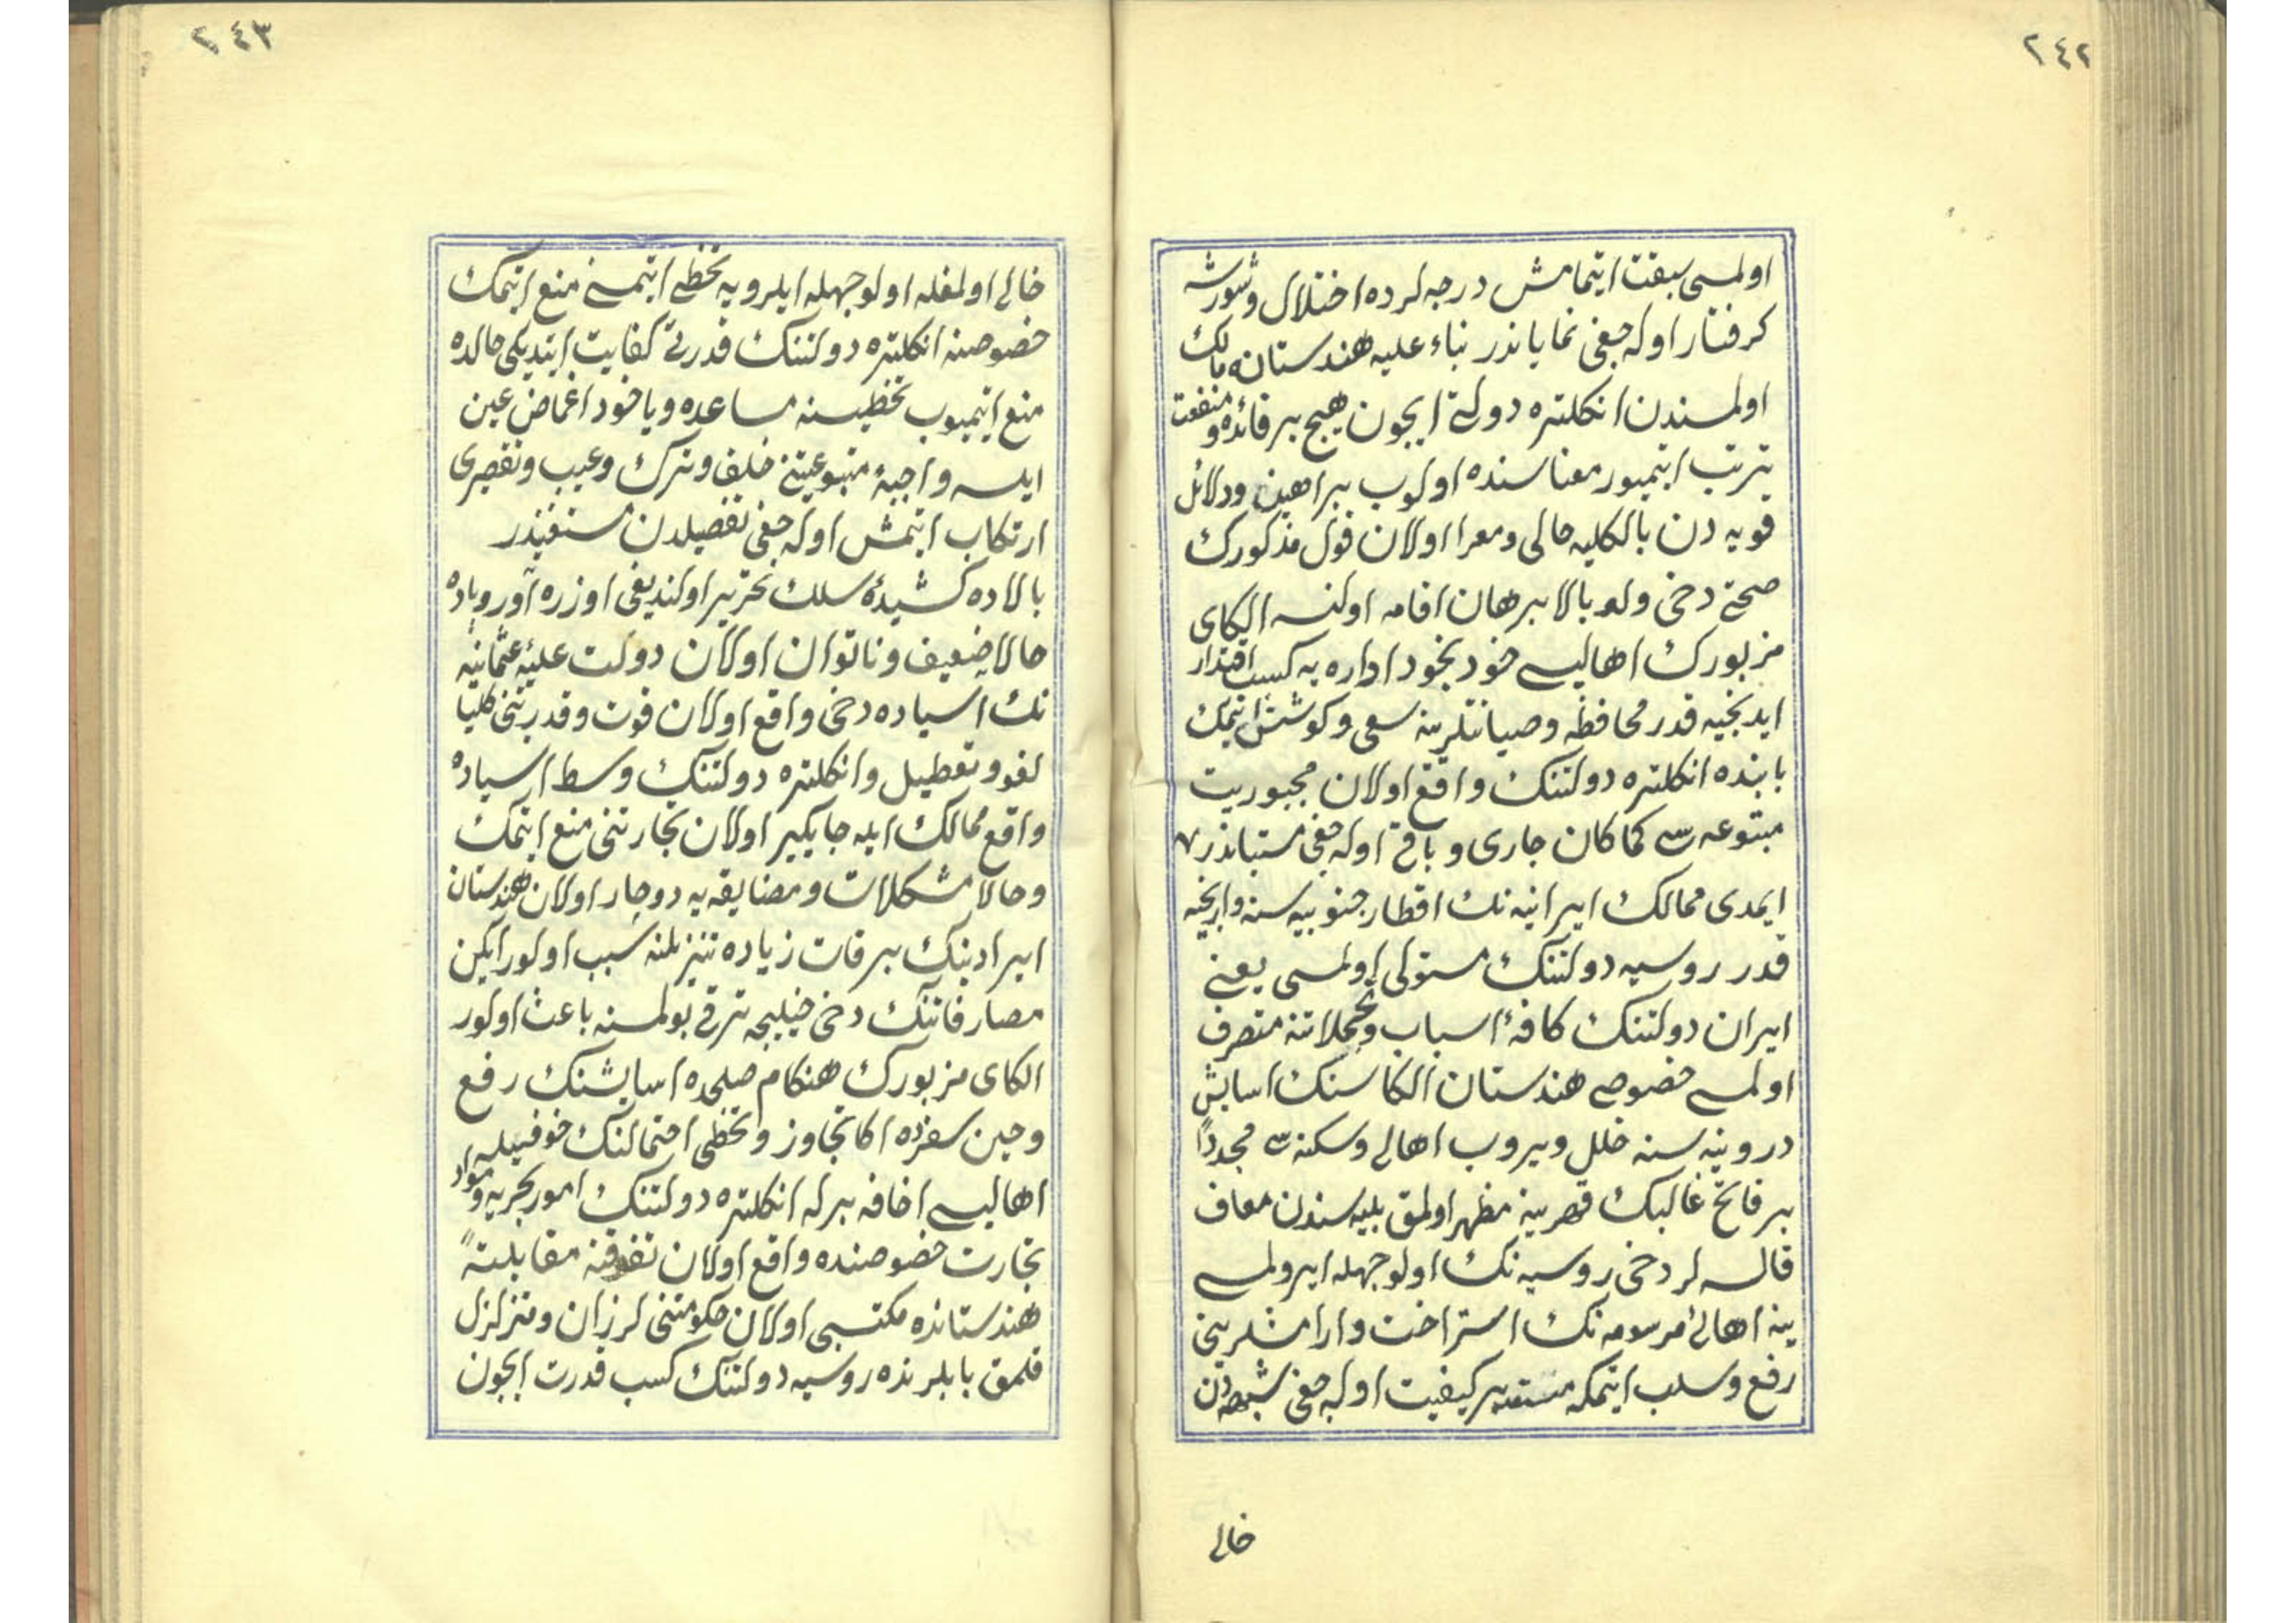 ٢٤٢
اولمسى سبقت ايتمامش درجه لرده اختلال وشورشه
كرفتار اوله جغى نماياندر بناء عليه هندستانه مالك
اولمسندن انكلتره دولتى ايچون هيچ بر فائده ومنفعت
ترتب ايتميور معناسنده اولوب براهين ودلائل
قويه دن بالكليه خالى ومعرا اولان قول مذكورك
صحتى دخى ولو بالا برهان اقامه اولنسه الكاى
مزبورك اهاليسى خود بخود اداره يه كسب اقتدار
ايدنجيه قدر محافظه وصيانتلرينه سعى وكوشش ايتمك
بابنده انكلتره دولتنك واقع اولان مجبوريت
متبوعه سى كما كان جارى وباقى اوله جغى مستباندر
ايمدى ممالك ايرانيه نك اقطار جنوبيه سنه وارنجيه
قدر روسيه دولتنك مستولى اولمسى يعنى
ايران دولتنك كافهٔ اسباب وتحملاتنه متصرف
اولمسى خصوصى هندستان الكاسنك اسايش
درونيه سنه خلل ويروب اهالى وسكنه سى مجدداً
بر فاتح غالبك قهرينه مظهر اولمق بليه سندن معاف
قالسه لر دخى روسيه نك اولوجهله ايرولمسى
ينه اهالئ مرسومه نك استراحت وارامشلرينى
رفع وسلب ايتمكه مستعد بر كيفيت اوله جغى شبهه دن
خالى
٢٤٣
خالى اولمغله اولوجهله ايلرويه تخطى ايتمسنى منع ايتمك
خصوصنه انكلتره دولتنك قدرتى كفايت ايتديكى حالده
منع ايتميوب تخطيسنه مساعده وياخود اغماض عين
ايلسه واجبهٔ متبوعيتنى خلف وترك وعيب وتقصيرى
ارتكاب ايتمش اوله جغى تفصيلدن مستغنيدر
بالاده كشيدهٔ سلك تحرير اولنديغى اوزره آوروپاده
حالا ضعيف وناتوان اولان دولت عليهٔ عثمانيه
نك آسياده دخى واقع اولان قوت وقدرتنى كلياً
لغو وتعطيل وانكلتره دولتنك وسط آسياده
واقع ممالك ايله جايكير اولان تجارتنى منع ايتمك
وحالا مشكلات ومضايقه يه دوچار اولان هندستان
ايرادينك بر قات زياده تنزيلنه سبب اولور ايكن
مصارفاتنك دخى خيليجه ترقى بولمسنه باعث اولور
الكاى مزبورك هنكام صلحده اسايشنك رفع
وحين سفرده اكا تجاوز وتخطى احتمالنك خوفيله
اهاليسى اخافه برله انكلتره دولتنك امور بحريه ومواد
تجارت خصوصنده واقع اولان تفوقنه مقابلةً
هندستانده مكتسبى اولان حكومتنى لرزان ومتزلزل
قلمق بابلرنده روسيه دولتنك كسب قدرت ايچون